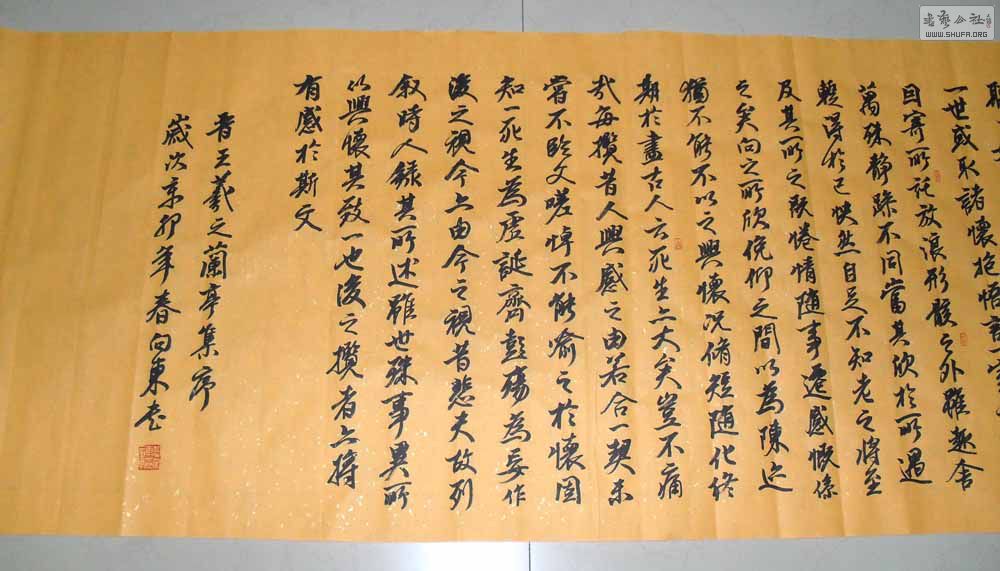 一世或取諸懷抱悟言一室
因寄所託放浪形骸之外雖趣舍
萬殊靜躁不同當其欣於所遇
暫得於己快然自足不知老之將至
及其所之既惓情隨事遷感慨係
之矣向之所欣俛仰之間以為陳迹
猶不能不以之興懷況脩短隨化終
期於盡古人云死生亦大矣豈不痛
哉每攬昔人興感之由若合一契未
嘗不臨文嗟悼不能喻之於懷固
知一死生為虛誕齊彭殤為妄作
後之視今亦由今之視昔悲夫故列
敘時人錄其所述雖世殊事異所
以興懷其致一也後之攬者亦將
有感於斯文
晉王羲之蘭亭集序
歲次辛卯年春向東書
書藝公社
WWW.SHUFA.ORG